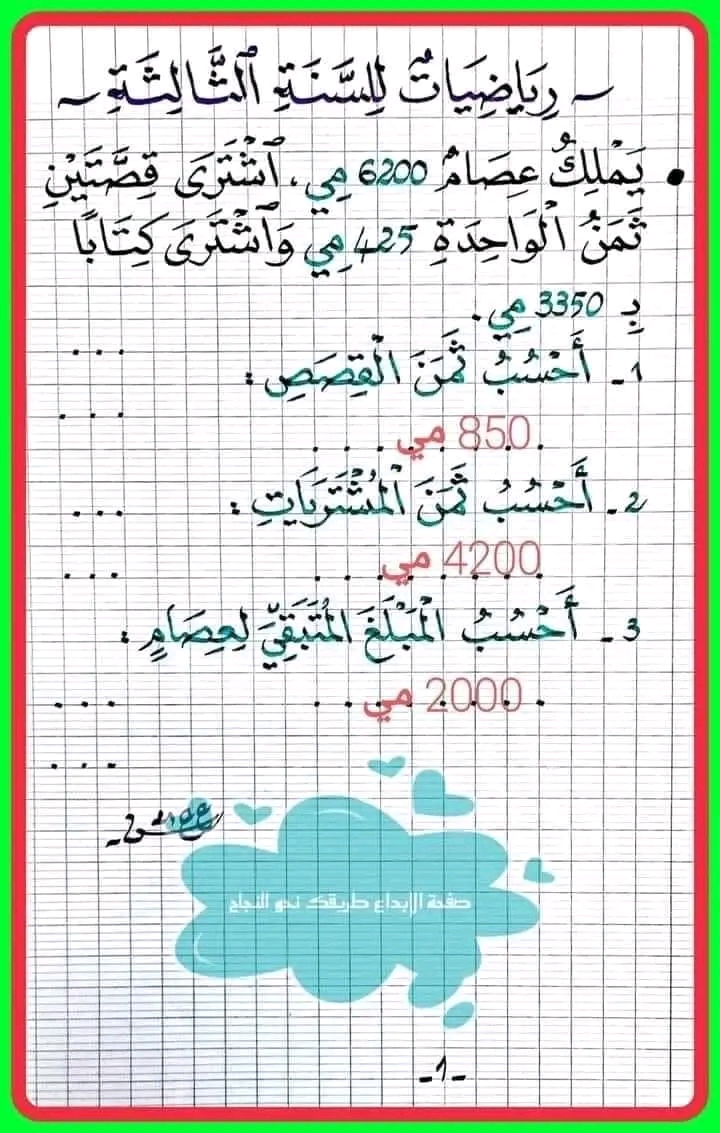 ~ رِيَاضِيَاتٌ لِلسَّنَةِ ٱلثَّالِثَةِ ~
• يَمْلِكُ عِصَامُ 6200 مِي، ٱشْتَرَى قِصَّتَيْنِ
ثَمَنُ الْوَاحِدَةِ 425 مِي وَٱشْتَرَى كِتَابًا
بِ 3350 مِي.
1- أَحْسُبُ ثَمَنَ الْقِصَصِ : ...
850 مي ...
2- أَحْسُبُ ثَمَنَ الْمُشْتَرَيَاتِ : ...
4200 مي ...
3- أَحْسُبُ الْمَبْلَغَ المُتَبَقِّيَ لِعِصَامٍ :
2000 مي ...
...
صفحة الإبداع طريقك نحو النجاح
-1-